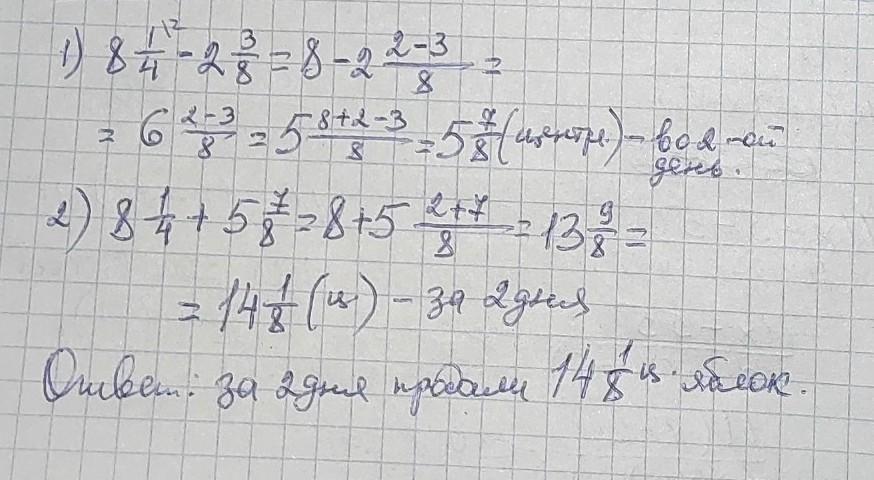 1) 8 1/4 \2 - 2 3/8 = 8 - 2 (2-3)/8 =
= 6 (2-3)/8 = 5 (8+2-3)/8 = 5 7/8 (центн.) - во 2-ой
день.
2) 8 1/4 + 5 7/8 = 8 + 5 (2+7)/8 = 13 9/8 =
= 14 1/8 (ц) - за 2 дня
Ответ: за 2 дня продали 14 1/8 ц. яблок.